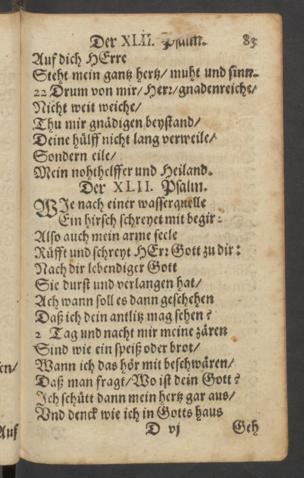 Der XLII. Psalm. 83
Auf dich HErre
Steht mein gantz hertz/ muht und sinn.
22 Drum von mir/ Herꝛ/ gnadenreiche/
Nicht weit weiche/
Thu mir gnädigen beystand/
Deine hülff nicht lang verweile/
Sondern eile/
Mein nohthelffer und Heiland.
Der XLII. Psalm.
WIe nach einer wasserquelle
Ein hirsch schreyet mit begir:
Also auch mein arme seele
Rüfft und schreyt HErꝛ Gott zu dir:
Nach dir lebendiger Gott
Sie durst und verlangen hat/
Ach wann soll es dann geschehen
Daß ich dein antliz mag sehen?
2 Tag und nacht mir meine zären
Sind wie ein speiß oder brot/
Wann ich das hör mit beschwären/
Daß man fragt/ Wo ist dein Gott?
Ich schütt dann mein hertz gar aus/
Vnd denck wie ich in Gotts haus
D vj Geh
en/
Auf